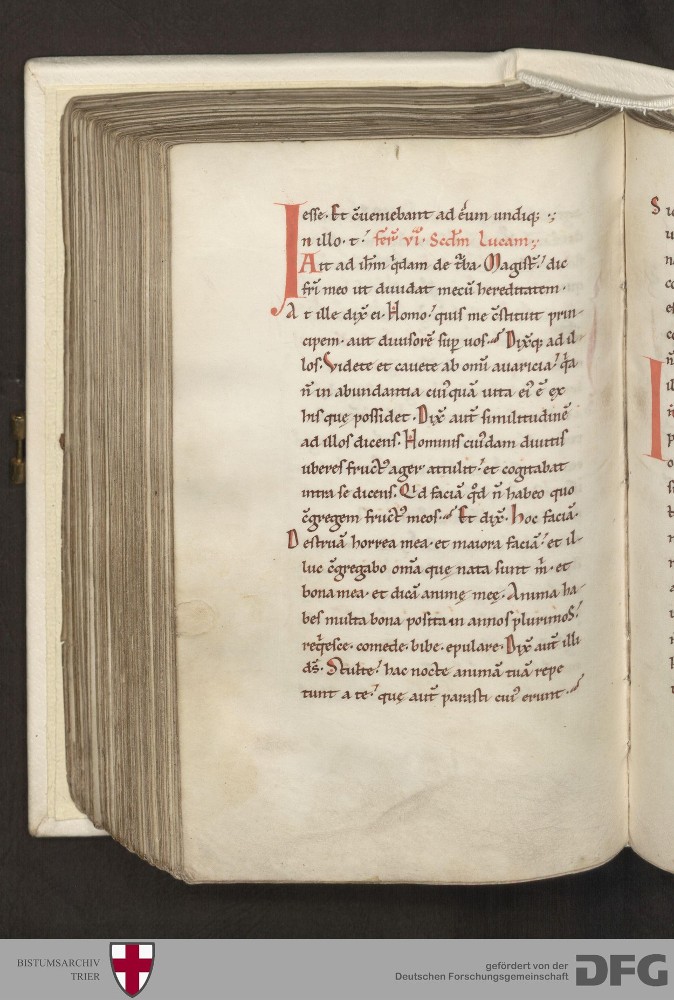 esse. Et c̄ueniebant ad eū undiq; ·,·
In illo. t̄. fer̄ vi. Scdm Lucam;
Ait ad ih̄m q̇dam de t̄ba. Magist̄. dic
fr̄i meo ut diuidat mecū hereditatem.
At ille dix̄ ei. Homo. quis me c̄stituit prin-
cipem. aut diuisorē sup̱ uos. Dix̄q; ad il-
los. Videte et cauete ab omī auaricia. q̇a
n̄ in abundantia cui'quā uita ei' ē ex
his quę possidet. Dix̄ aut̄ similitudinē
ad illos dicens. Hominis cui'dam diuitis
uberes fruct' ager attulit. et cogitabat
intra se dicens. Qid faciā q̇d n̄ habeo quo
c̄gregem fruct' meos. Et dix̄. Hoc faciā.
Destruā horrea mea. et maiora faciā. et il-
luc c̄gregabo om̄a quę nata sunt m̄. et
bona mea. et dicā animę meę. Anima ha-
bes multa bona posita in annos plurimos.
req̇esce. comede. bibe. epulare. Dix̄ aut̄ illi
d̄s. Stulte. hac nocte animā tuā repe
tunt a te. quę aut̄ parasti cui' erunt.
BISTUMSARCHIV
TRIER
gefördert von der
Deutschen Forschungsgemeinschaft
DFG